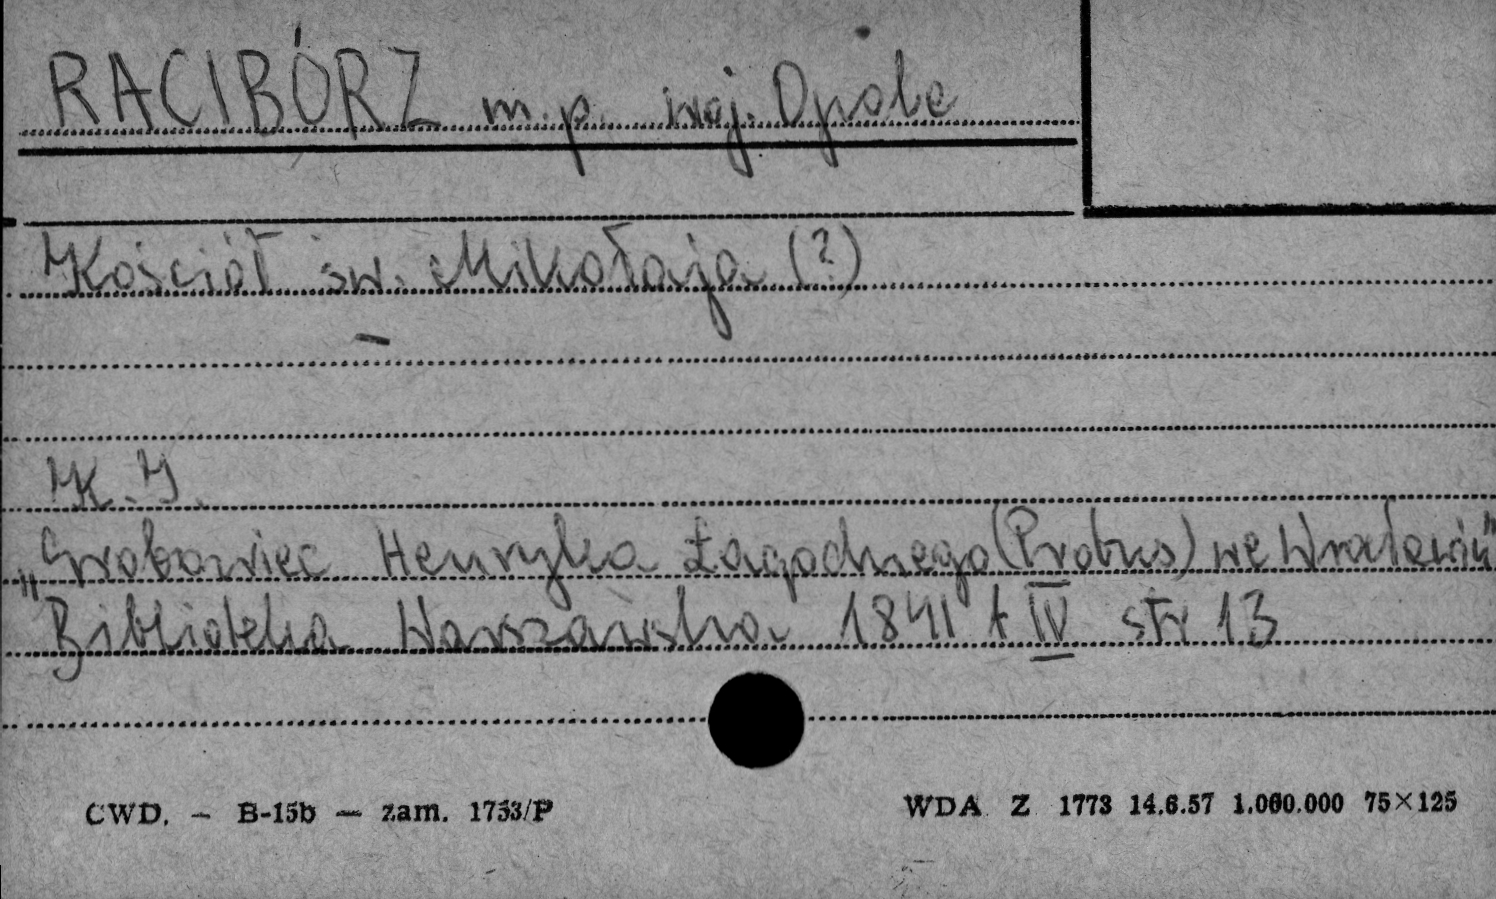 RACIBÓRZ m.p. woj. Opole
Kościół św. Mikołaja (?)
K. J.
„Grobowiec Henryka Łagodnego (Probus) we Wrocławiu"
Biblioteka Warszawska 1841 t IV str 13
CWD. — B-15b — zam. 1753/P
WDA Z 1773 14.6.57 1.000.000 75×125